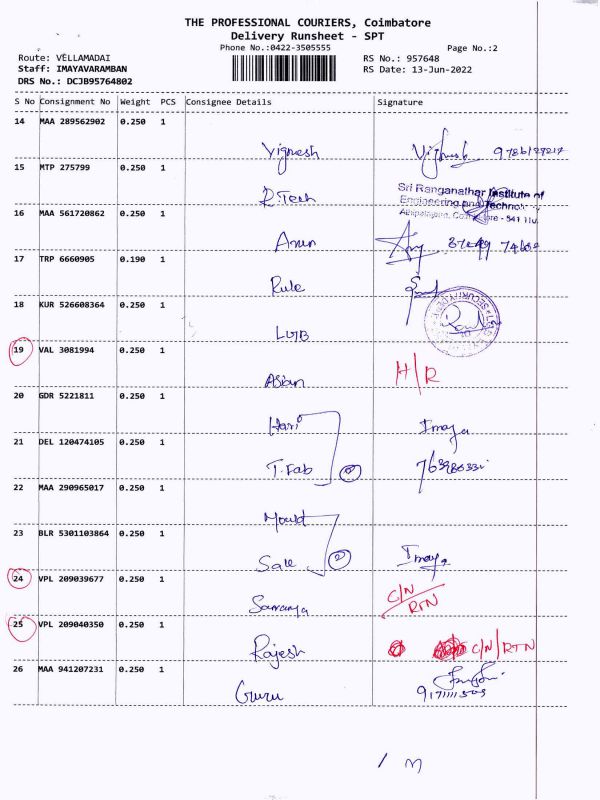 THE PROFESSIONAL COURIERS, Coimbatore
Delivery Runsheet - SPT
Phone No.:0422-3505555 Page No.:2
Route: VELLAMADAI RS No.: 957648
Staff: IMAYAVARAMBAN RS Date: 13-Jun-2022
DRS No.: DCJB95764802
S No Consignment No Weight PCS Consignee Details Signature
14 MAA 289562902 0.250 1
Vignesh Vignesh
15 MTP 275799 0.250 1
R.Tech Sri Ranganathar Institute of
Engineering and Technology
16 MAA 561720862 0.250 1
Arun
17 TRP 6660905 0.190 1
Rule
18 KUR 526608364 0.250 1
LGB
19 VAL 3081994 0.250 1
Asian H/R
20 GDR 5221811 0.250 1
Hari Imaya
21 DEL 120474105 0.250 1
T.Fab 2
22 MAA 290965017 0.250 1
Mould
23 BLR 5301103864 0.250 1
Sale 2 Imaya
24 VPL 209039677 0.250 1
Saranya C/N
RTN
25 VPL 209040350 0.250 1
Rajesh C/N/RTN
26 MAA 941207231 0.250 1
Guru